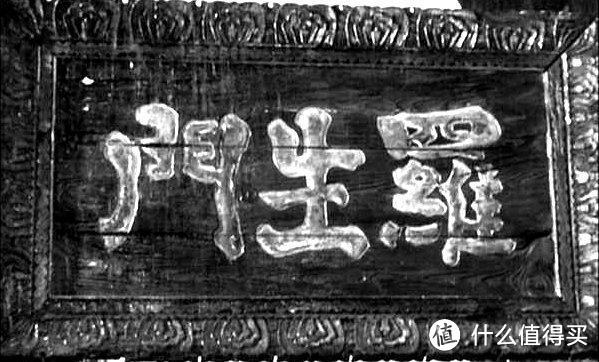 羅生門
值 什么值得买